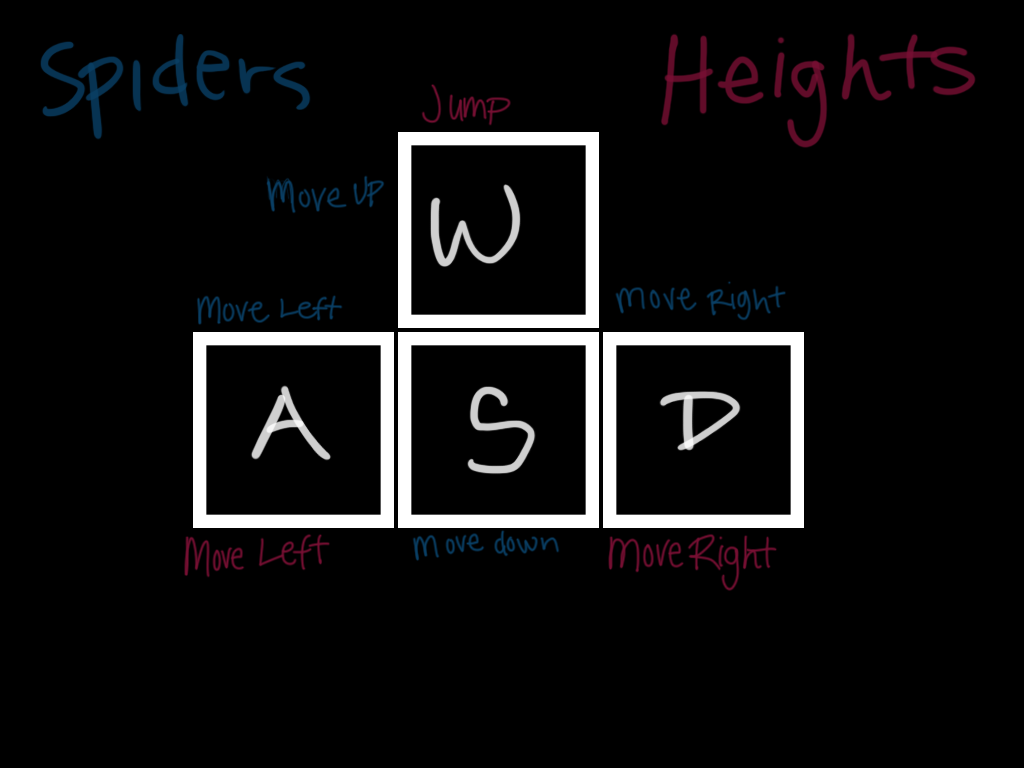 Spiders
Heights
Jump
Move UP
W
Move Left
Move Right
A
S
D
Move Left
Move down
Move Right